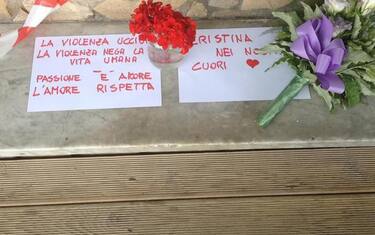 LA VIOLENZA UCCIDE
LA VIOLENZA NEGA LA
VITA UMANA
PASSIONE "E" AMORE
L'AMORE RISPETTA
CRISTINA
NEI NO
CUORI